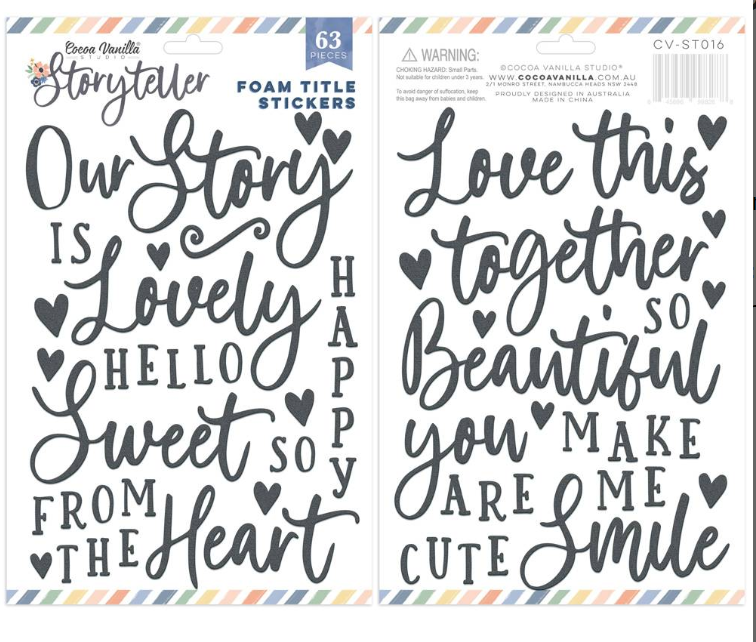 Cocoa Vanilla
STUDIO
Storyteller
63
PIECES
FOAM TITLE
STICKERS
Our Story
IS
Lovely
HAPPY
HELLO
Sweet
SO
FROM
THE Heart
WARNING:
CHOKING HAZARD: Small Parts.
Not suitable for children under 3 years.
To avoid danger of suffocation, keep
this bag away from babies and children.
©COCOA VANILLA STUDIO®
WWW.COCOAVANILLA.COM.AU
2/1 MONRO STREET, NAMBUCCA HEADS NSW 2448
PROUDLY DESIGNED IN AUSTRALIA
MADE IN CHINA
CV-ST016
Love this
together
SO
Beautiful
you MAKE
ARE ME
CUTE Smile